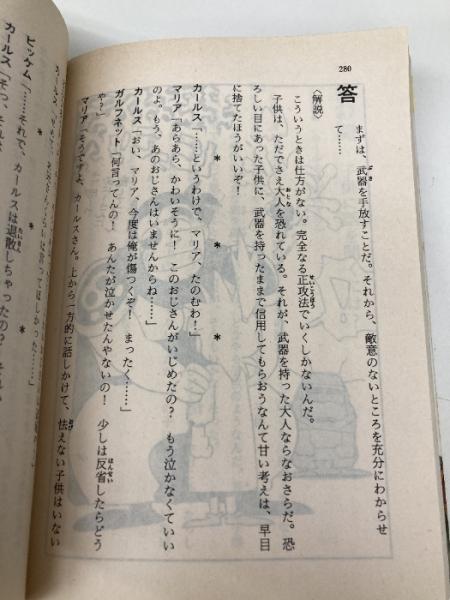 280
答
まずは、武器を手放すことだ。それから、敵意のないところを充分にわからせ
て……
〈解説〉
こういうときは仕方がない。完全なる正攻法でいくしかないんだ。
子供は、ただでさえ大人を恐れている。それが、武器を持った大人ならなおさらだ。恐
ろしい目にあった子供に、武器を持ったままで信用してもらおうなんて甘い考えは、早目
に捨てたほうがいいぞ！
＊　＊　＊
カールス「……というわけで、マリア、たのむわ！」
マリア「あらあら、かわいそうに！　このおじさんがいじめたの？　もう泣かなくていい
のよ。もう、あのおじさんはいませんからね……」
カールス「おい、マリア、今度は俺が傷つくぞ！　まったく……」
ガルフネット「何言ってんの！　あんたが泣かせたんやないの！　少しは反省したらどう
や？」
マリア「そうですよ、カールスさん。上から一方的に話しかけて、怯えない子供はいない
＊　＊　＊
ビッケム「……それで、カールスは退散しちゃったの？
カールス「そっ、それは